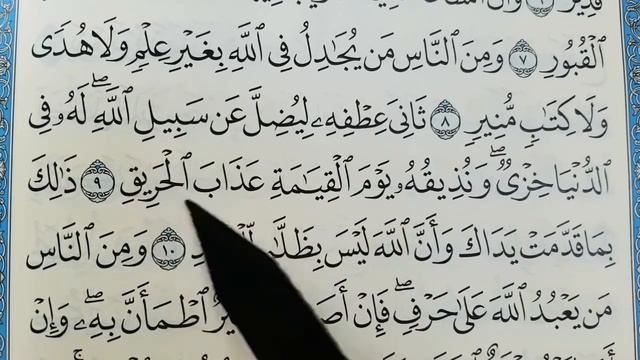 ٱلْقُبُورِ ٧ وَمِنَ ٱلنَّاسِ مَن يُجَٰدِلُ فِى ٱللَّهِ بِغَيْرِ عِلْمٍ وَلَا هُدًى
وَلَا كِتَٰبٍ مُّنِيرٍ ٨ ثَانِىَ عِطْفِهِۦ لِيُضِلَّ عَن سَبِيلِ ٱللَّهِۖ لَهُۥ فِى
ٱلدُّنْيَا خِزْىٌۖ وَنُذِيقُهُۥ يَوْمَ ٱلْقِيَٰمَةِ عَذَابَ ٱلْحَرِيقِ ٩ ذَٰلِكَ
بِمَا قَدَّمَتْ يَدَاكَ وَأَنَّ ٱللَّهَ لَيْسَ ١٠ وَمِنَ ٱلنَّاسِ
مَن يَعْبُدُ ٱللَّهَ عَلَىٰ حَرْفٍۖ فَإِنْ ٱطْمَأَنَّ بِهِۦۖ وَإِنْ